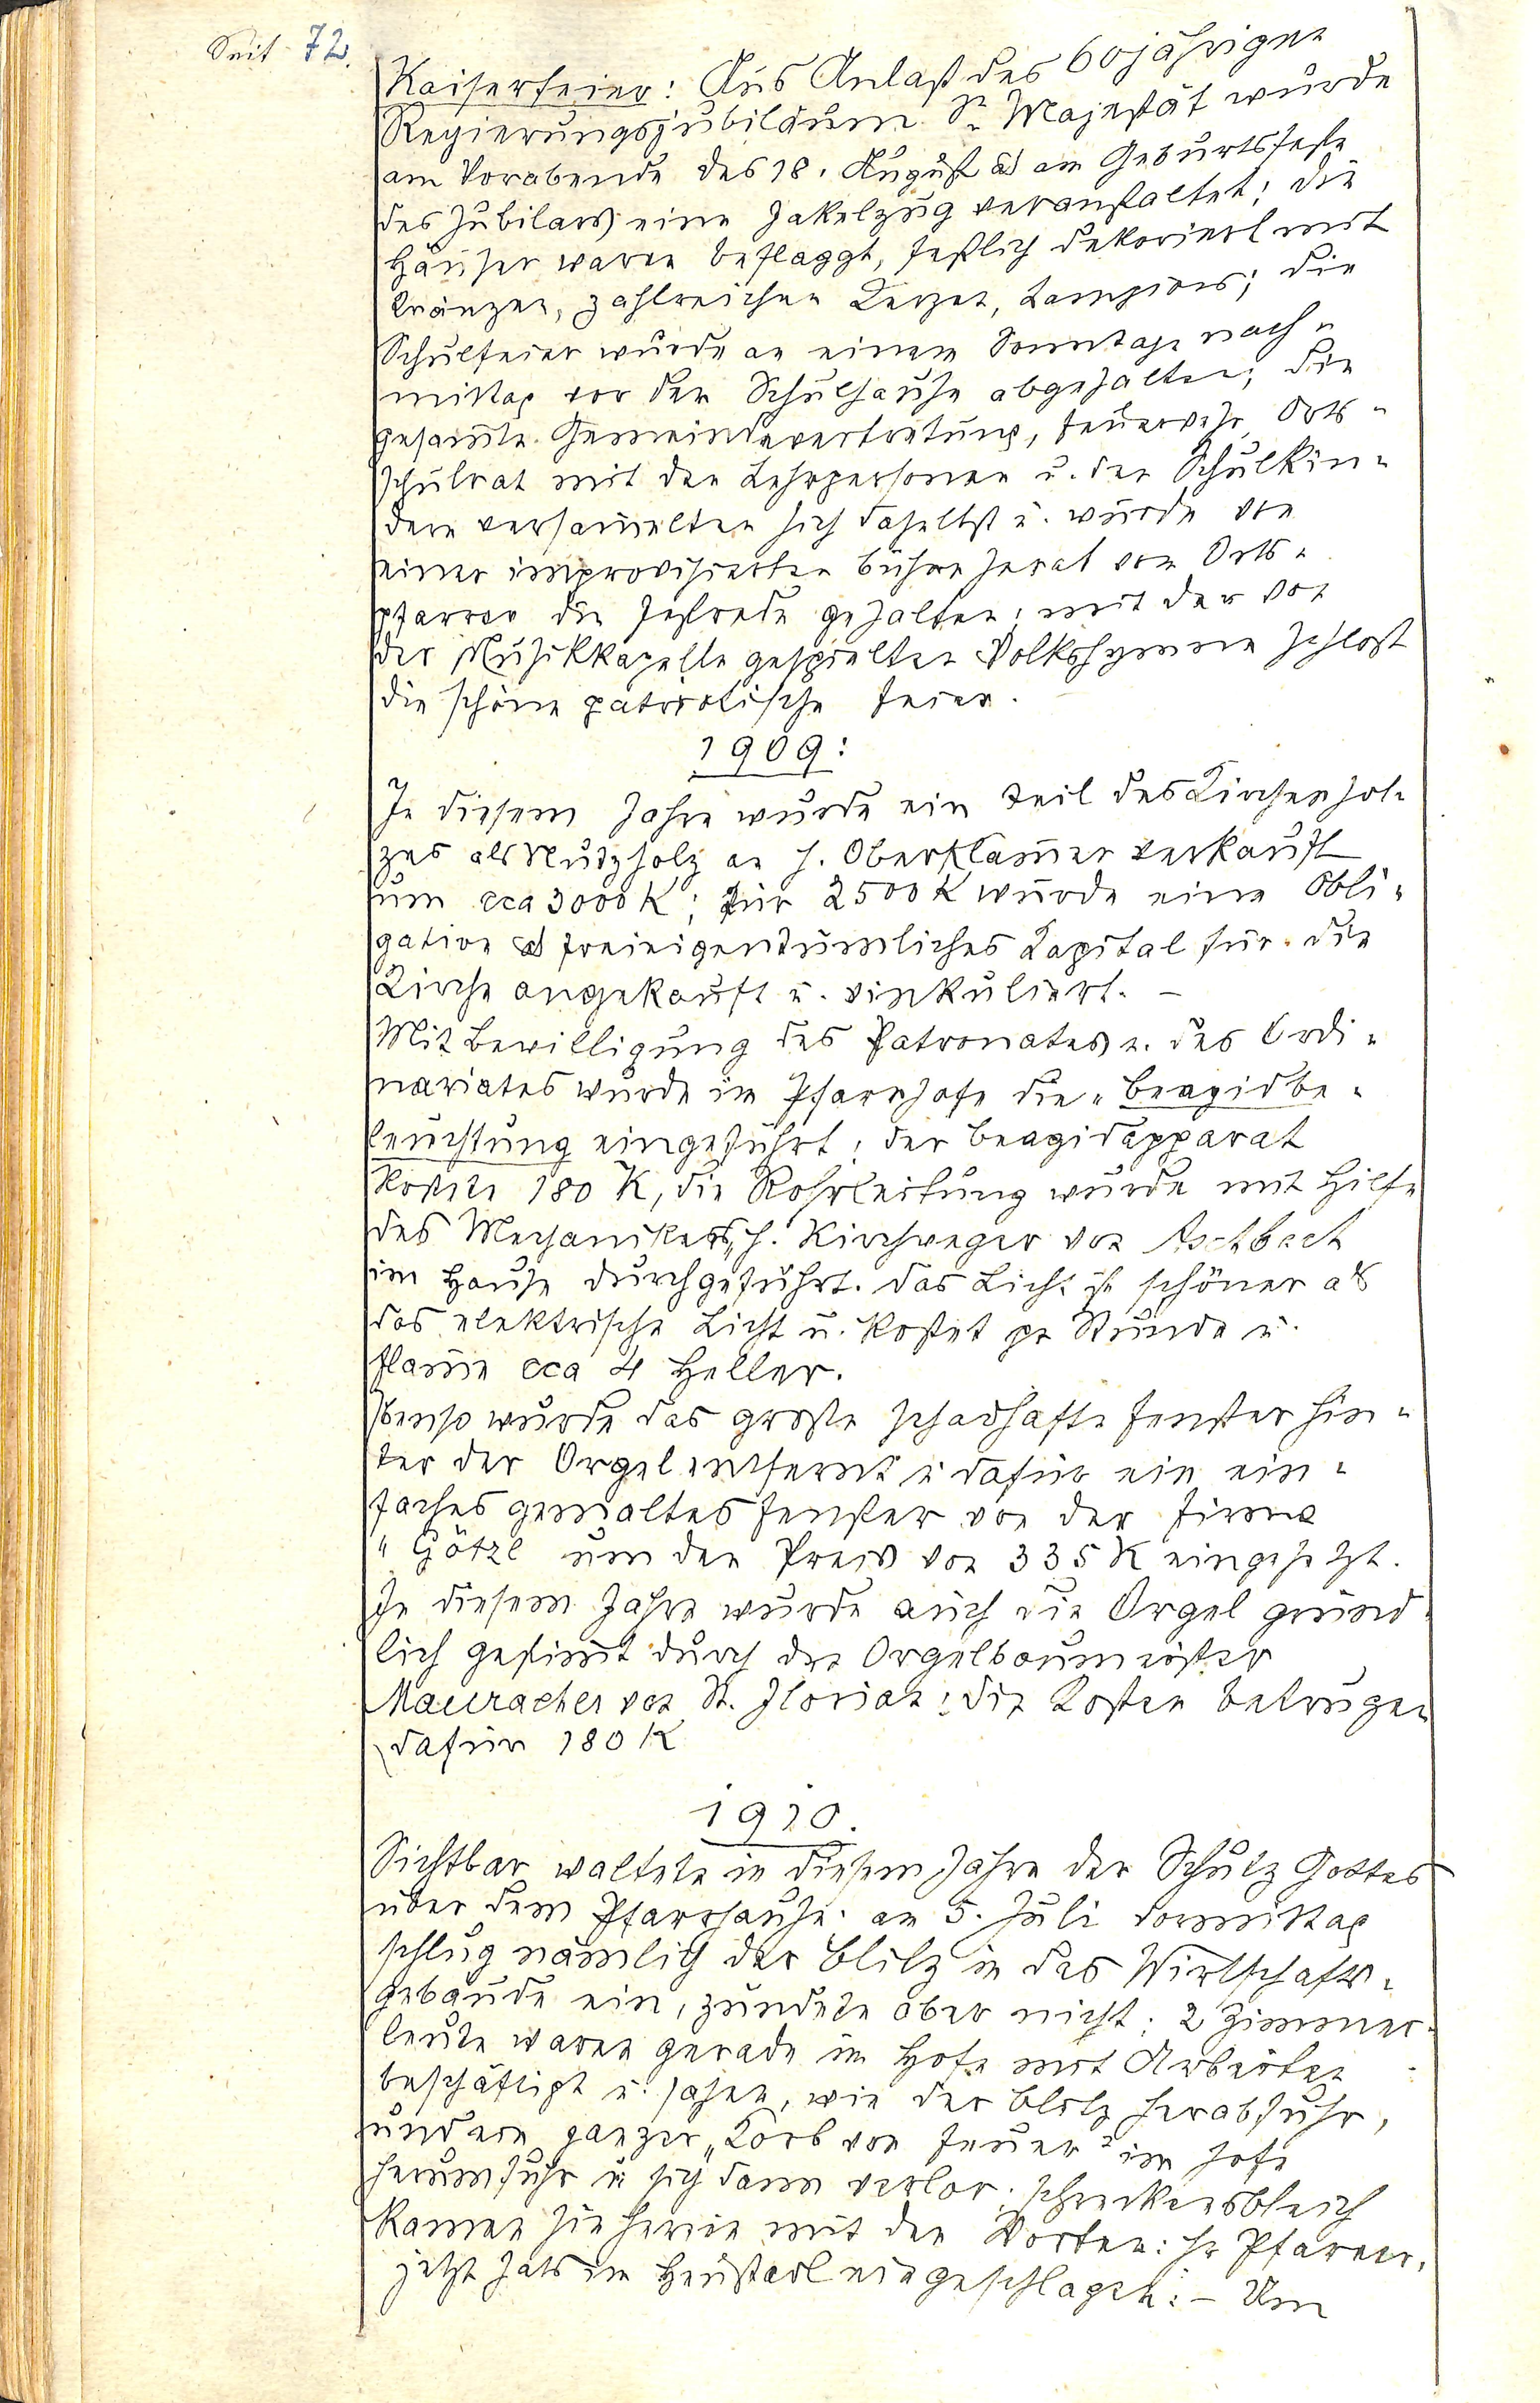 Seite 72.
Kaiserfeier: Aus Anlaß des 60jährigen
Regierungsjubiläum Sr Majestät wurde
am Vorabende des 18. August als am Geburtsfeste
des Jubilars eine Fakelzug veranstaltet; die
Häuser waren beflaggt, festlich dekoriert mit
Kränzen, zahlreichen Kerzen, Lampions; die
Schulfeier wurde an einem Sonntage nach-
mittag vor den Schulhause abgehalten; die
gesam̄te Gemeindevertretung, Feuerwehr, Orts-
schulrat mit den Lehrpersonen u. den Schulkin-
dern versam̄elten sich daselbst u. wurde von
einer improvisierten Bühne herab vom Orts-
pfarrer die Festrede gehalten; mit der von
der Musikkapelle gespielten Volkshymne schloß
die schöne patriotische Feier.
1909:
In diesem Jahre wurde ein Teil des Kirchenhol-
zes als Nutzholz an H. Oberklam̄er verkauft
um cca 3000 K; für 2500 K wurde eine Obli-
gation als freieigentümliches Kapital für die
Kirche angekauft u. vinkuliert. –
Mit Bewilligung des Patronates u. des Ordi-
nariates wurde im Pfarrhofe die "Beagidbe-
leuchtung eingeführt; der Beagidapparat
kostete 180 K, die Rohrleitung wurde mit Hilfe
des Mechanikers, H. Kirchweger von Aschbach
im Hause durchgeführt. Das Licht ist schöner als
das elektrische Licht u. kostet pr Stunde u.
Flam̄e cca 4 Heller.
Ebenso wurde das große schadhafte Fenster hin-
ter der Orgel entfernt u dafür ein ein-
faches gemaltes Fenster von der Firma
"Götzl um den Preis von 335 K eingesetzt.
In diesem Jahre wurde auch die Orgel gründ-
lich gestim̄t durch den Orgelbaumeister
Mauracher von St. Florian; die Kosten betrugen
dafür 180 K
1910.
Sichtbar waltete in diesem Jahre der Schutz Gottes
über dem Pfarrhause. am 5. Juli vormittag
schlug nämlich der Blitz in das Wirtschafts-
gebäude ein, zündete aber nicht; 2 Zimmer-
leute waren gerade im Hofe mit Arbeiten
beschäftigt u. sahen, wie der Blitz herabfuhr,
und ein ganzer "Korb von Feuer" im Hofe
herumfuhr u sich dann verlor; schreckensbleich
kamen sie herein mit den Worten: Hr Pfarrer,
jetzt hats im Heustadl eingeschlagen: – Um